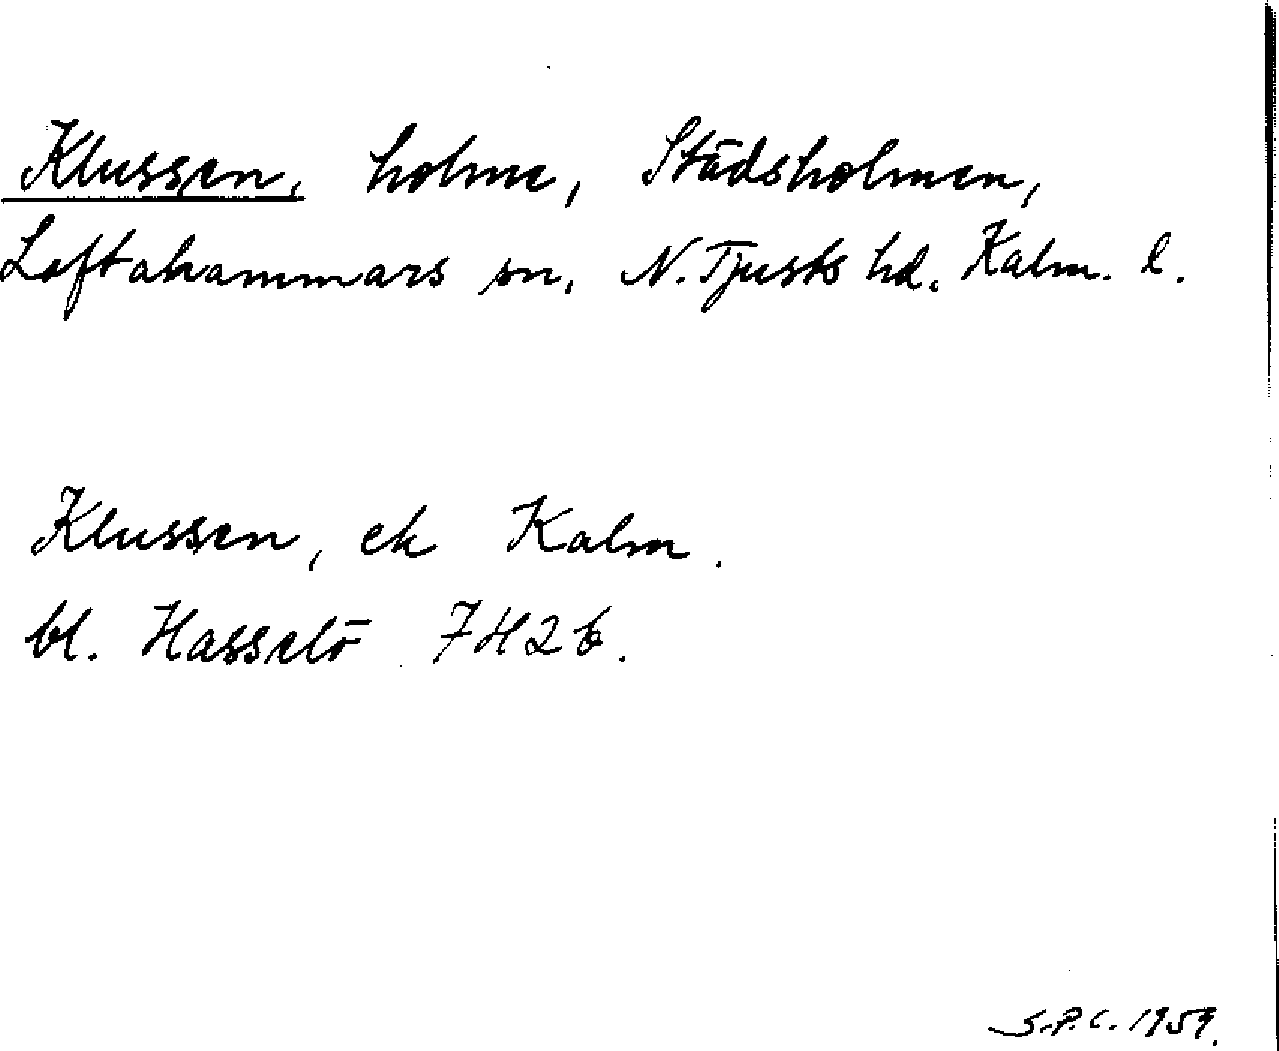 Klussen, holme, Städsholmen,
Loftahammars sn, N. Tjusts hd. Kalm. l.
Klussen, ek Kalm.
bl. Hasselö 7H2b.
S.P.C. 1959.